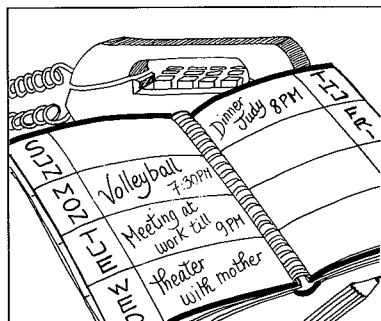 SUN
MON
Volleyball
7:30PM
TUE
Meeting at
work till
9PM
WED
Theater
with mother
THU
Dinner
Judy 8PM
FRI